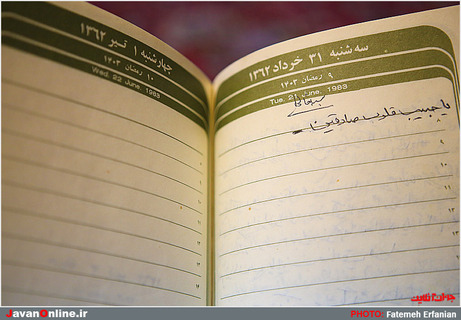 سه شنبه ۳۱ خرداد ۱۳۶۲
۹ رمضان ۱۴۰۳
Tue. 21 June. 1983
یا حبیب قلوب صادقین
۸
۹
۱۰
۱۱
چهارشنبه ۱ تیر ۱۳۶۲
۱۰ رمضان ۱۴۰۳
Wed. 22 June. 1983
JavanOnline.ir
PHOTO: Fatemeh Erfanian
جوان آنلاین